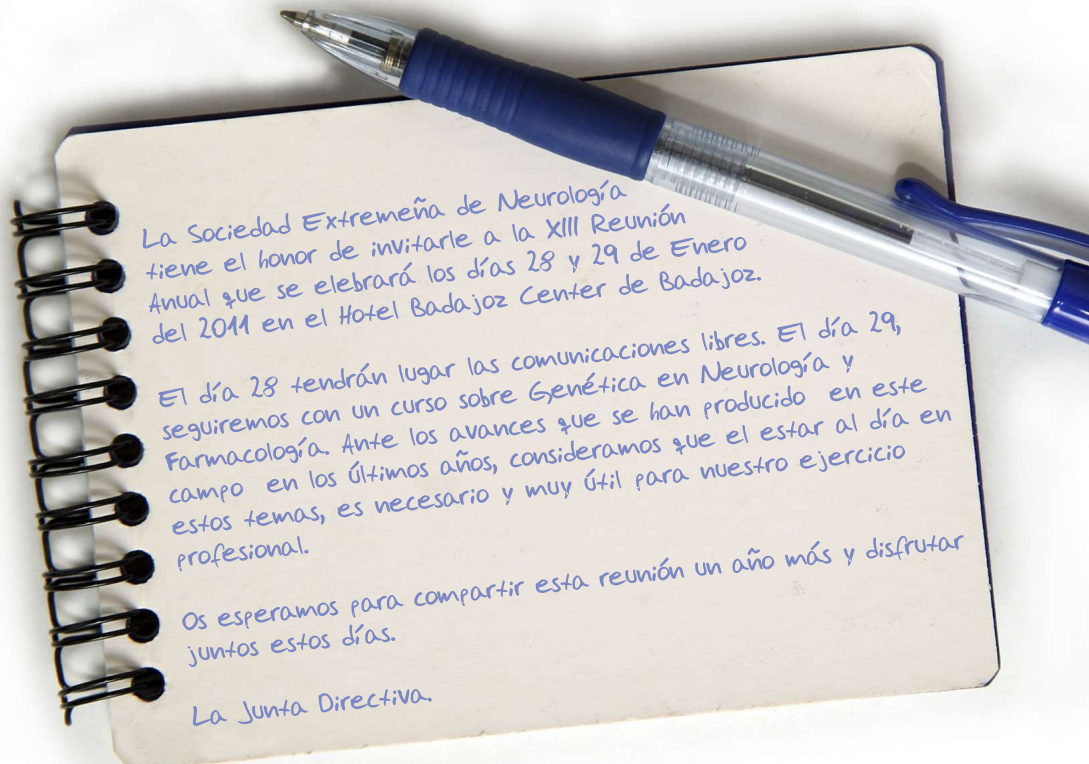 La Sociedad Extremeña de Neurología
tiene el honor de invitarle a la XIII Reunión
Anual que se elebrará los días 28 y 29 de Enero
del 2011 en el Hotel Badajoz Center de Badajoz.
El día 28 tendrán lugar las comunicaciones libres. El día 29,
seguiremos con un curso sobre Genética en Neurología y
Farmacología. Ante los avances que se han producido en este
campo en los últimos años, consideramos que el estar al día en
estos temas, es necesario y muy útil para nuestro ejercicio
profesional.
Os esperamos para compartir esta reunión un año más y disfrutar
juntos estos días.
La Junta Directiva.